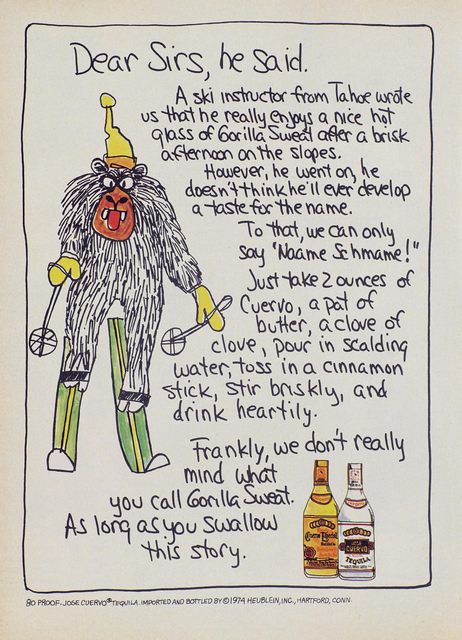 Dear Sirs, he said.
A ski instructor from Tahoe wrote
us that he really enjoys a nice hot
glass of Gorilla Sweat after a brisk
afternoon on the slopes.
However, he went on, he
doesn't think he'll ever develop
a taste for the name.
To that, we can only
say "Naame Schmame!"
Just take 2 ounces of
Cuervo, a pat of
butter, a clove of
clove, pour in scalding
water, toss in a cinnamon
stick, stir briskly, and
drink heartily.
Frankly, we don't really
mind what
you call Gorilla Sweat.
As long as you swallow
this story.
Cuervo Especial
JOSE
CUERVO
TEQUILA
80 PROOF. JOSE CUERVO® TEQUILA. IMPORTED AND BOTTLED BY © 1974 HEUBLEIN, INC., HARTFORD, CONN.